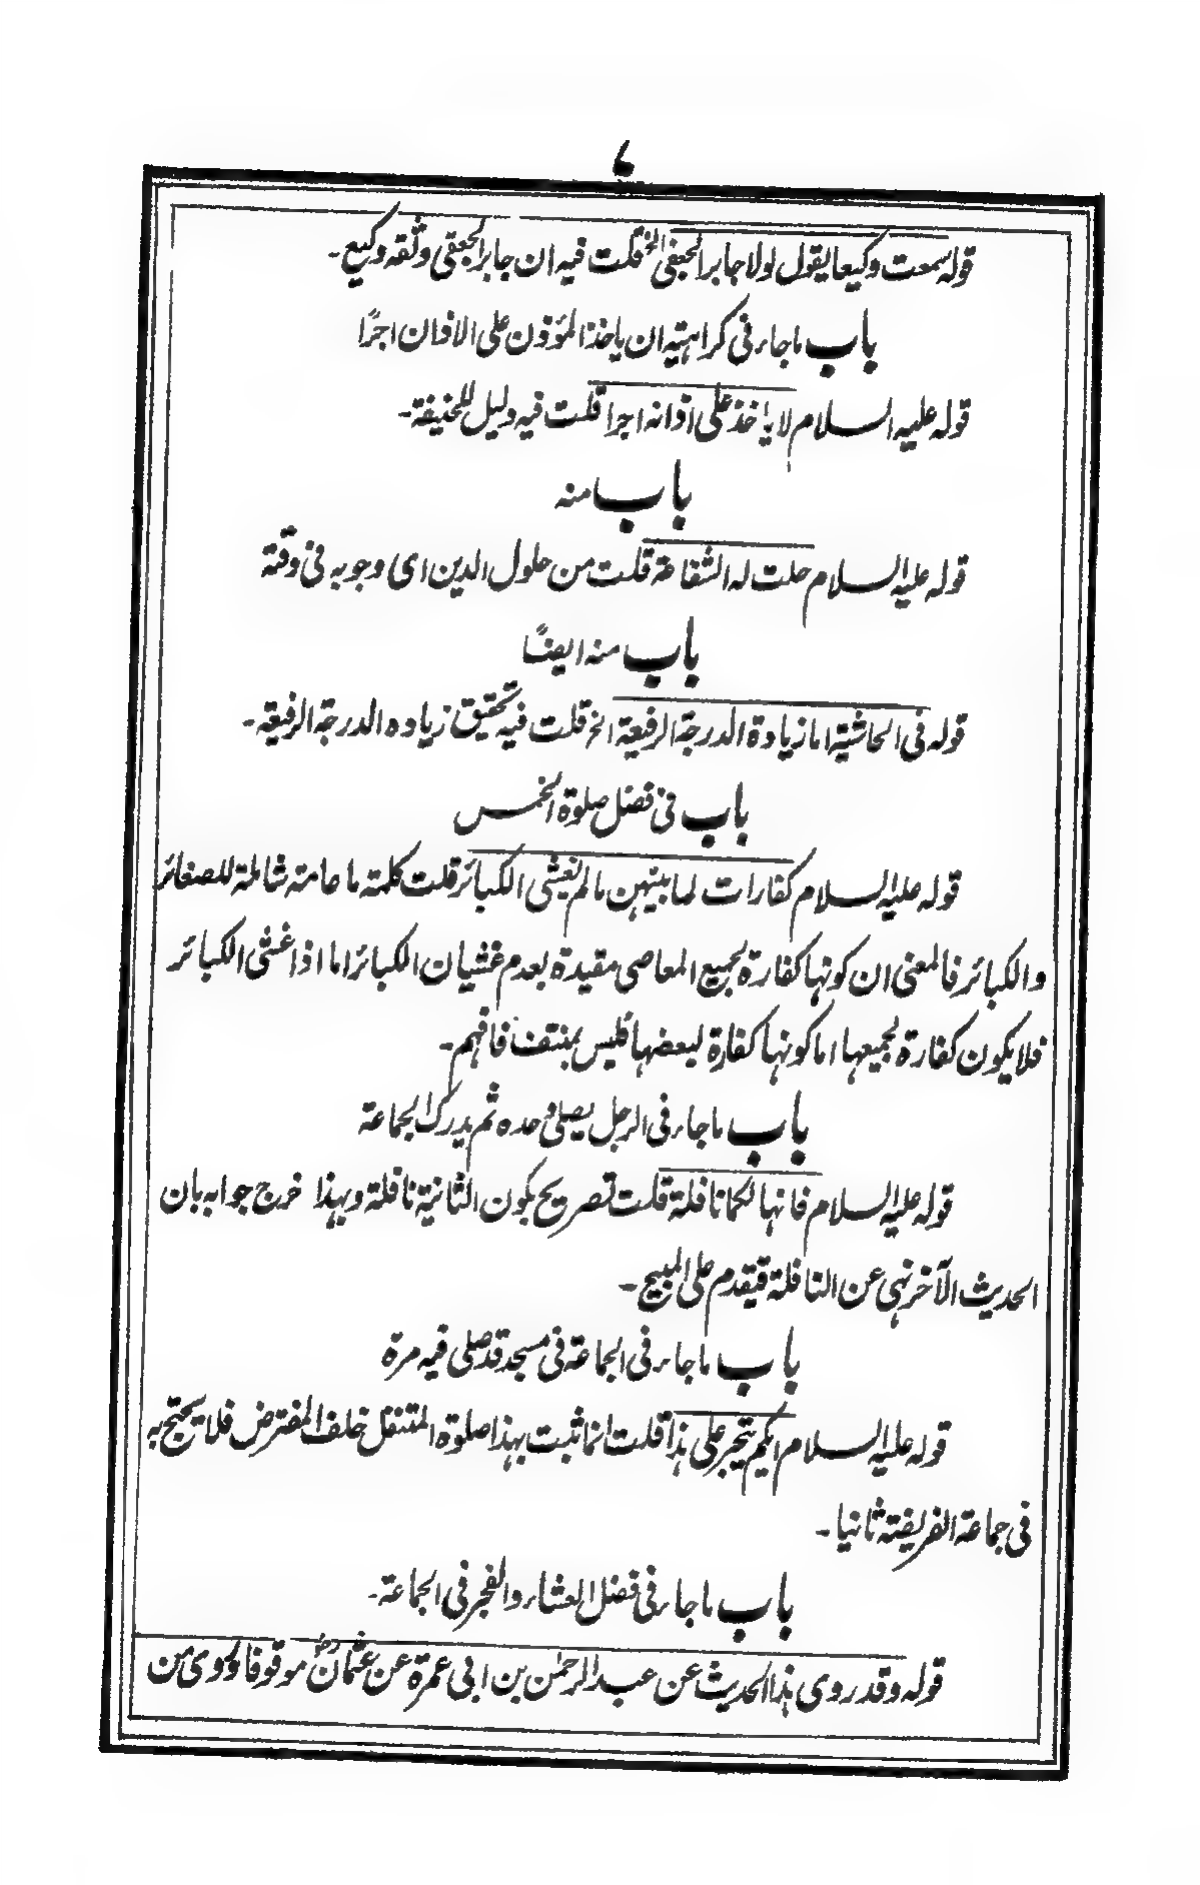 ۷
قوله سمعت وكيعا يقول لولا جابر الجعفى الخ قلت فيه ان جابر الجعفى وثقه وكيع۔
باب ماجاء فى كراهية ان ياخذ المؤذن على الاذان اجرًا
قوله عليه السلام لا ياخذ على اذانه اجرا قلت فيه دليل للحنيفة۔
باب منه
قوله عليه السلام حلت له الشفاعة قلت من حلول الدين اى وجوبه فى وقته
باب منه ايضًا
قوله فى الحاشية اما زيادة الدرجة الرفيعة الخ قلت فيه تحقيق زياده الدرجة الرفيعة۔
باب فى فضل صلوة الخمس
قوله عليه السلام كفارات لما بينهن مالم يغشى الكبائر قلت كلمته ما عامته شاملة للصغائر
والكبائر فالمعنى ان كونها كفارة لجميع المعاصى مقيدة بعدم غشيان الكبائر اما اذا غشى الكبائر
فلا يكون كفارة لجميعها اما كونها كفارة لبعضها فليس بمنتف فافهم۔
باب ماجاء فى الرجل يصلى وحده ثم يدرك الجماعة
قوله عليه السلام فانها لكما نافلة قلت تصريح بكون الثانية نافلة وبهذا خرج جوابه بان
الحديث الآخر نهى عن النافلة فيقدم على المبيح۔
باب ماجاء فى الجماعة فى مسجد قد صلى فيه مرة
قوله عليه السلام ايكم يتجر على هذا قلت انما ثبت بهذا صلوة المتنفل خلف المفترض فلا يحتج به
فى جماعة الفريضة ثانيا۔
باب ماجاء فى فضل العشاء والفجر فى الجماعة۔
قوله وقد روى هذا الحديث عن عبد الرحمٰن بن ابى عمرة عن عثمانؓ موقوفا وروى من